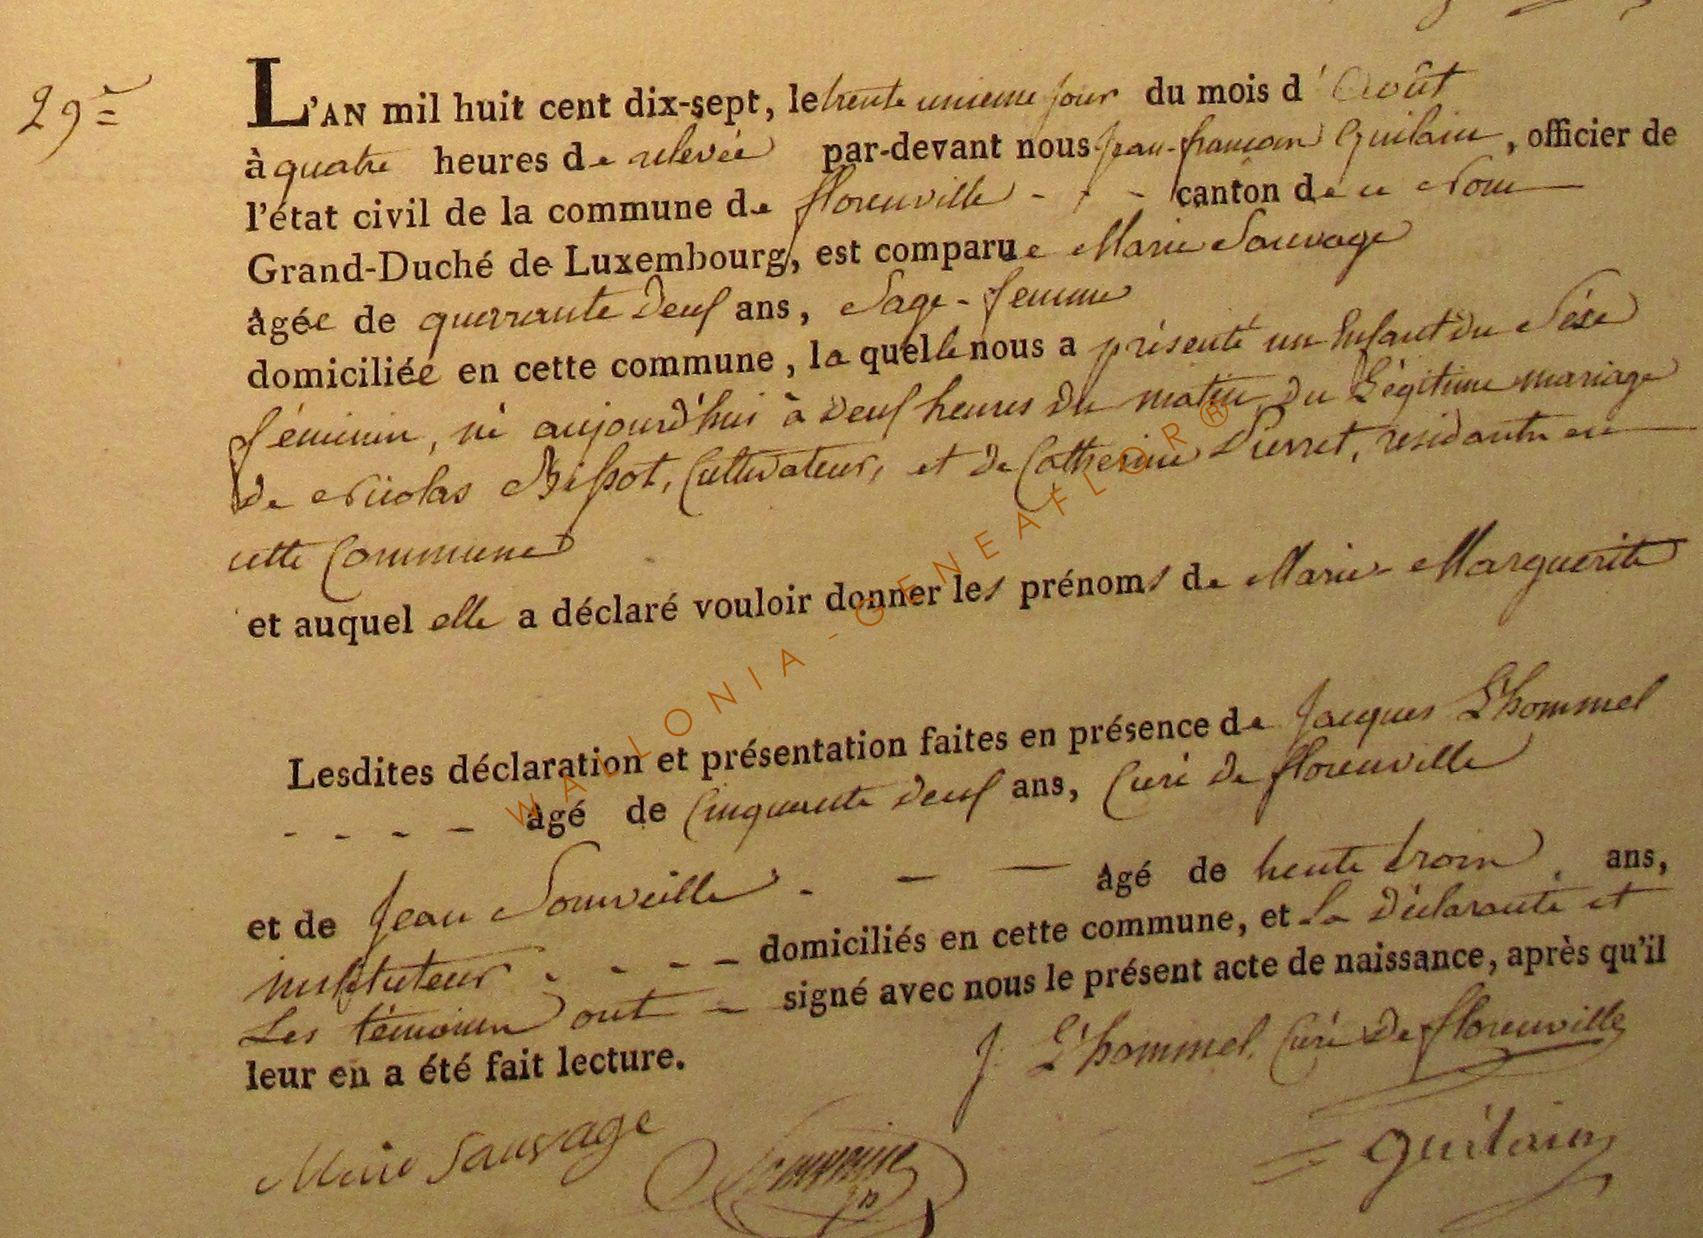 29e
L'AN mil huit cent dix-sept, le trente unieme jour du mois d'Août
à quatre heures de relevée par-devant nous Jean-françois Guilain, officier de
l'état civil de la commune de florenville - - - canton de ce Nom
Grand-Duché de Luxembourg, est comparue Marie Sauvage
âgée de quarrante deux ans, Sage-femme
domiciliée en cette commune, la quelle nous a présenté un Enfant du Séxe
féminin, né aujourd'hui à deux heures du matin du Légitime mariage
de Nicolas, Cultivateur, et de Catherine Pierret, résidants en
cette Commune
et auquel elle a déclaré vouloir donner les prénoms de Marie-Marguerite
Lesdites déclaration et présentation faites en présence de Jacques L'hommel
- - - - âgé de Cinquante deux ans, Curé de florenville
et de Jean - - - âgé de trente trois, ans,
instituteur - - - - domiciliés en cette commune, et La déclarante et
Les témoins ont - signé avec nous le présent acte de naissance, après qu'il
leur en a été fait lecture.
J. L'hommel, Curé de florenville
Marie Sauvage
Guilain
WALLONIA-GENEAFLOR®